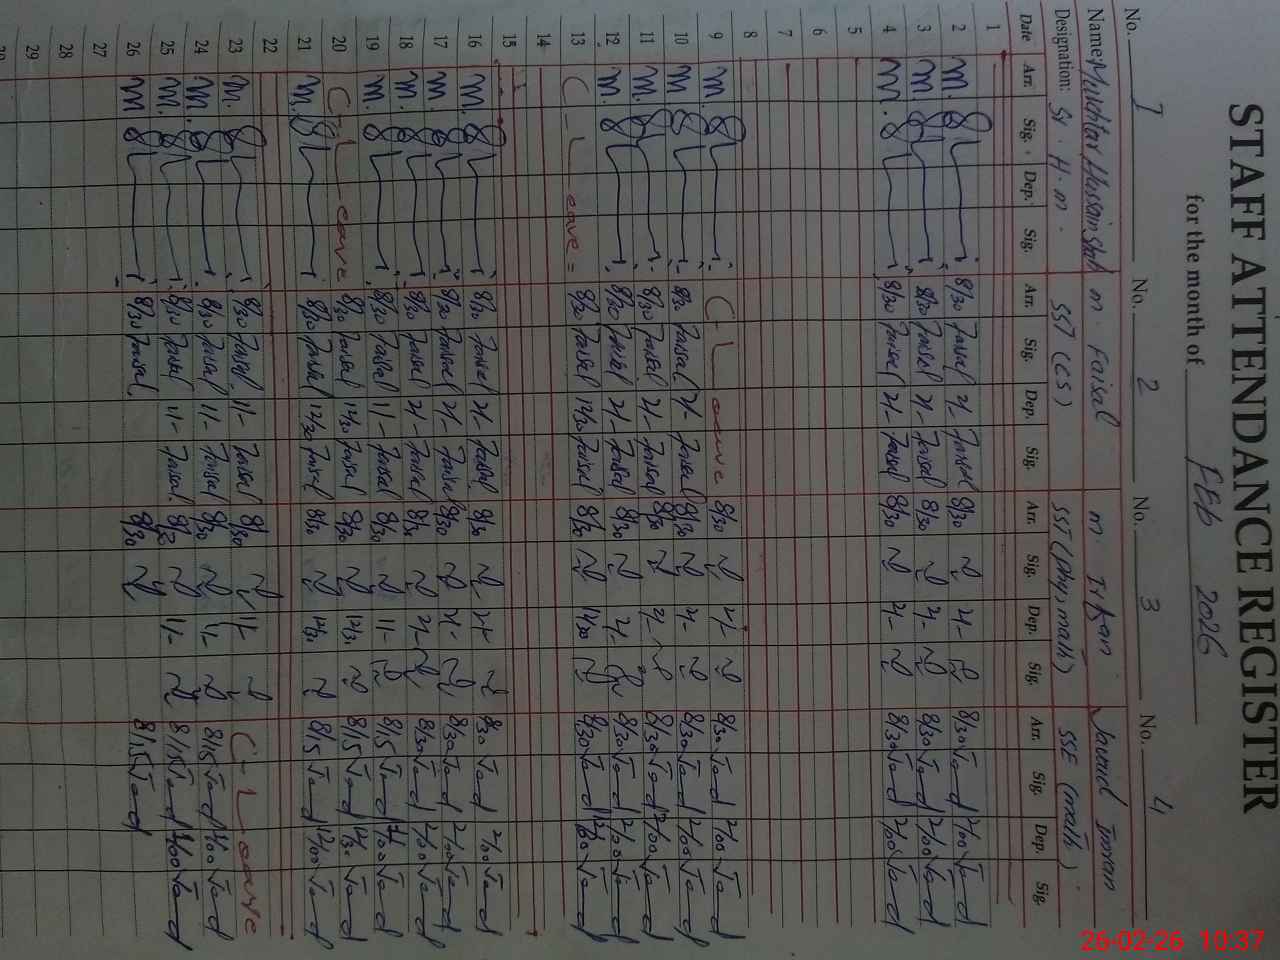 STAFF ATTENDANCE REGISTER
for the month of Feb 2026
No. 1 No. 2 No. 3 No. 4
Name: Mukhtar Hussain Shah M. Faisal M. Irfan Javed Imran
Designation: Sr. H.M. SST (CS) SST (Phy, math) SSE (math)
Date Arr. Sig. Dep. Sig. Arr. Sig. Dep. Sig. Arr. Sig. Dep. Sig. Arr. Sig. Dep. Sig.
1
2 M. 8/30 Faisal 2/- Faisal 8/30 2/- 8/30 Jad 2/00 Jad
3 M 8/30 Faisal 2/- Faisal 8/30 2/- 8/30 Jad 2/00 Jad
4 M. 8/30 Faisal 2/- Faisal 8/30 2/- 8/30 Jad 2/00 Jad
5
6
7
8
9 M. C-Leave 8/30 2/- 8/30 Jad 2/00 Jad
10 M 8/30 Faisal 2/- Faisal 8/30 2/- 8/30 Jad 2/00 Jad
11 M. 8/30 Faisal 2/- Faisal 8/30 2/- 8/30 Jad 2/00 Jad
12 M. 8/30 Faisal 2/- Faisal 8/30 2/- 8/30 Jad 2/00 Jad
13 C-Leave = 8/30 Faisal 12/30 Faisal 8/30 8/30 Jad Jad
14
15
16 M. 8/30 Faisal 2/- Faisal 8/30 2/- 8/30 Jad 2/00 Jad
17 M 8/30 Faisal 2/- Faisal 8/30 2/- 8/30 Jad 2/00 Jad
18 M. 8/30 Faisal 2/- Faisal 2/- 8/30 Jad 2/00 Jad
19 M. 8/30 Faisal 11/- Faisal 8/30 11/- 8/15 Jad Jad
20 C-Leave 8/30 Faisal 12/30 Faisal 8/30 8/15 Jad Jad
21 M. 8/30 Faisal 12/30 Faisal 8/30 8/15 Jad Jad
22
23 M. 8/30 Faisal 11/- Faisal 8/30 11/- C-Leave
24 M. 8/30 Faisal 11/- Faisal 8/30 11/- 8/15 Jad Jad
25 M. 8/30 Faisal 11/- Faisal 8/30 11/- 8/15 Jad Jad
26 M 8/30 Faisal 8/30 8/15 Jad
27
28
29
30
26-02-26 10:37